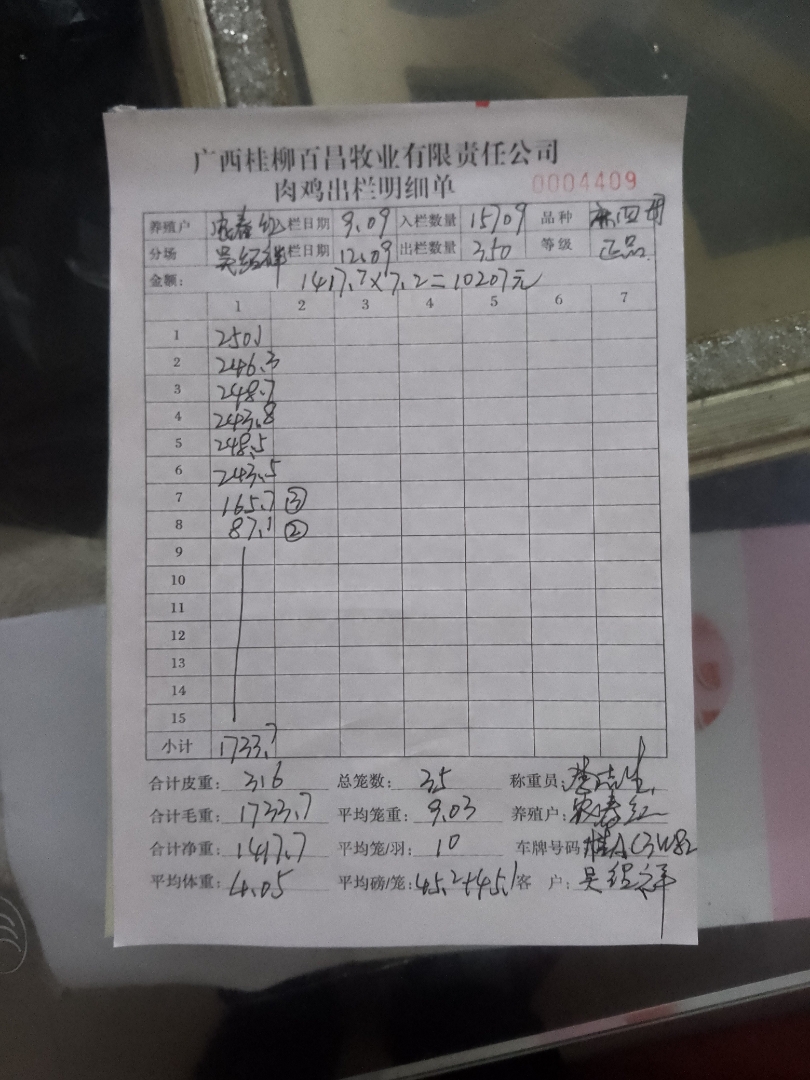 广西桂柳百昌牧业有限责任公司
肉鸡出栏明细单 0004409
养殖户 春红 入栏日期 9.09 入栏数量 15709 品种 麻四
分场 吴绍祥 出栏日期 12.09 出栏数量 350 等级 正品
金额: 1417.7×7.2=10207元
1 2 3 4 5 6 7
1 250.1
2 246.3
3 248.7
4 243.8
5 248.5
6 243.5
7 165.7 ③
8 87.1 ②
9
10
11
12
13
14
15
小计 1733.7
合计皮重: 316 总笼数: 35 称重员:
合计毛重: 1733.7 平均笼重: 9.03 养殖户: 春红
合计净重: 1417.7 平均笼/羽: 10 车牌号码: 桂AC3W82
平均体重: 4.05 平均磅/笼: 45.2+45.1 客 户: 吴绍祥